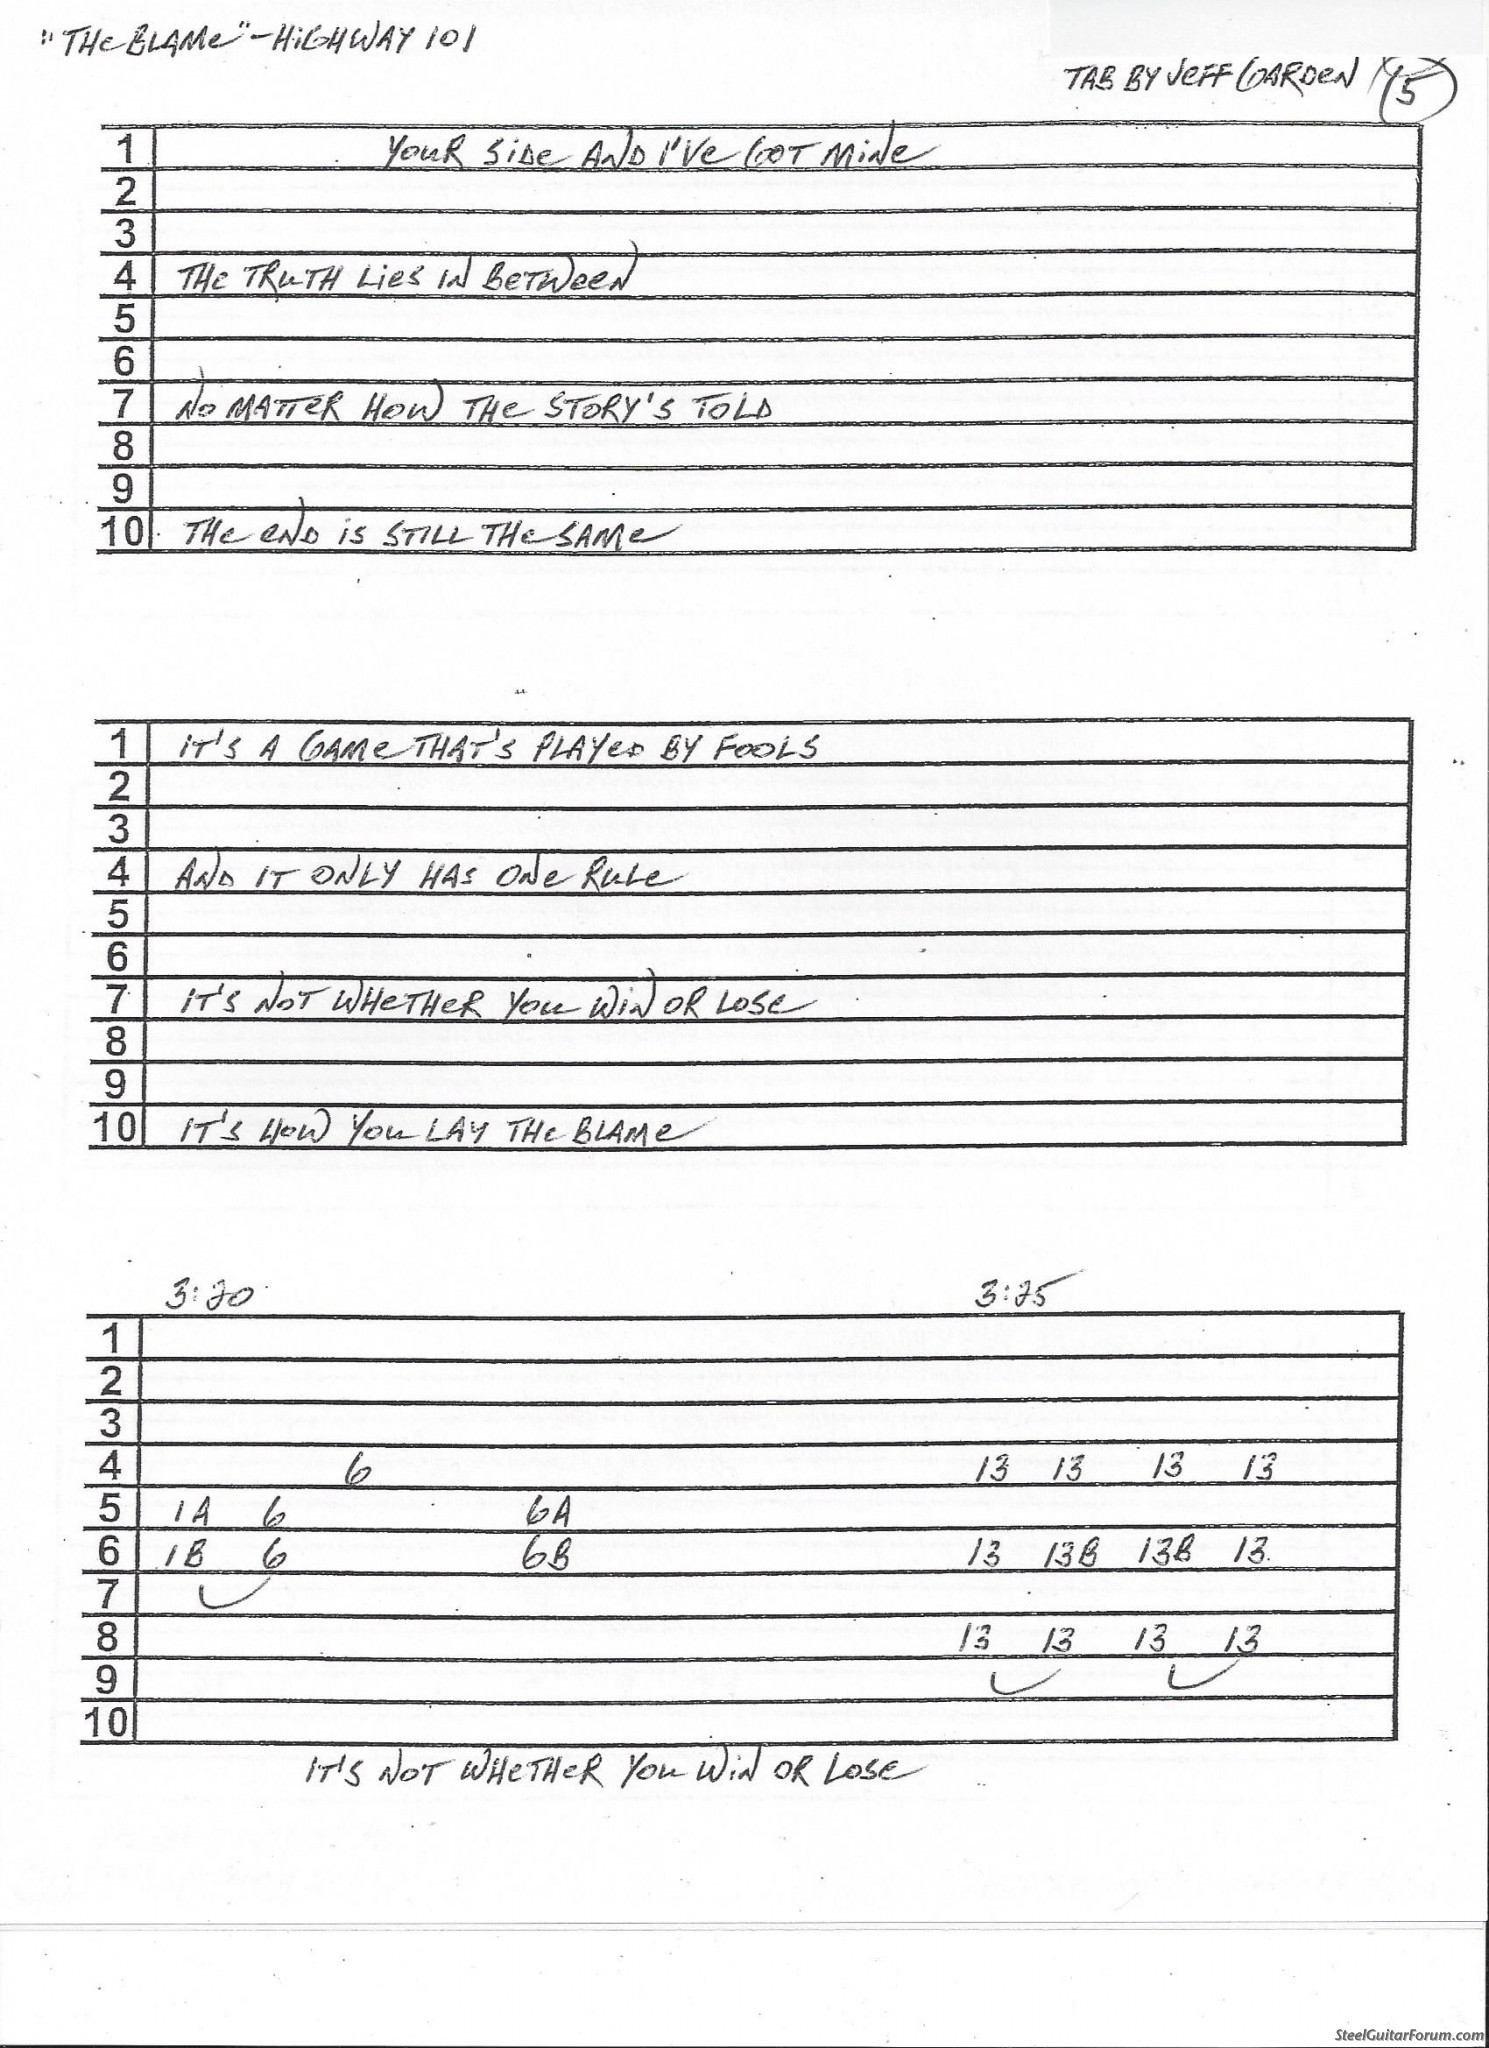 "THE BLAME" - HIGHWAY 101
TAB BY JEFF GARDEN 5
1 YOUR SIDE AND I'VE GOT MINE
2
3
4 THE TRUTH LIES IN BETWEEN
5
6
7 NO MATTER HOW THE STORY'S TOLD
8
9
10 THE END IS STILL THE SAME
1 IT'S A GAME THAT'S PLAYED BY FOOLS
2
3
4 AND IT ONLY HAS ONE RULE
5
6
7 IT'S NOT WHETHER YOU WIN OR LOSE
8
9
10 IT'S HOW YOU LAY THE BLAME
3:20 3:25
1
2
3
4 6 13 13 13 13
5 1A 6 6A
6 1B 6 6B 13 13B 13B 13
7
8 13 13 13 13
9
10
IT'S NOT WHETHER YOU WIN OR LOSE
SteelGuitarForum.com